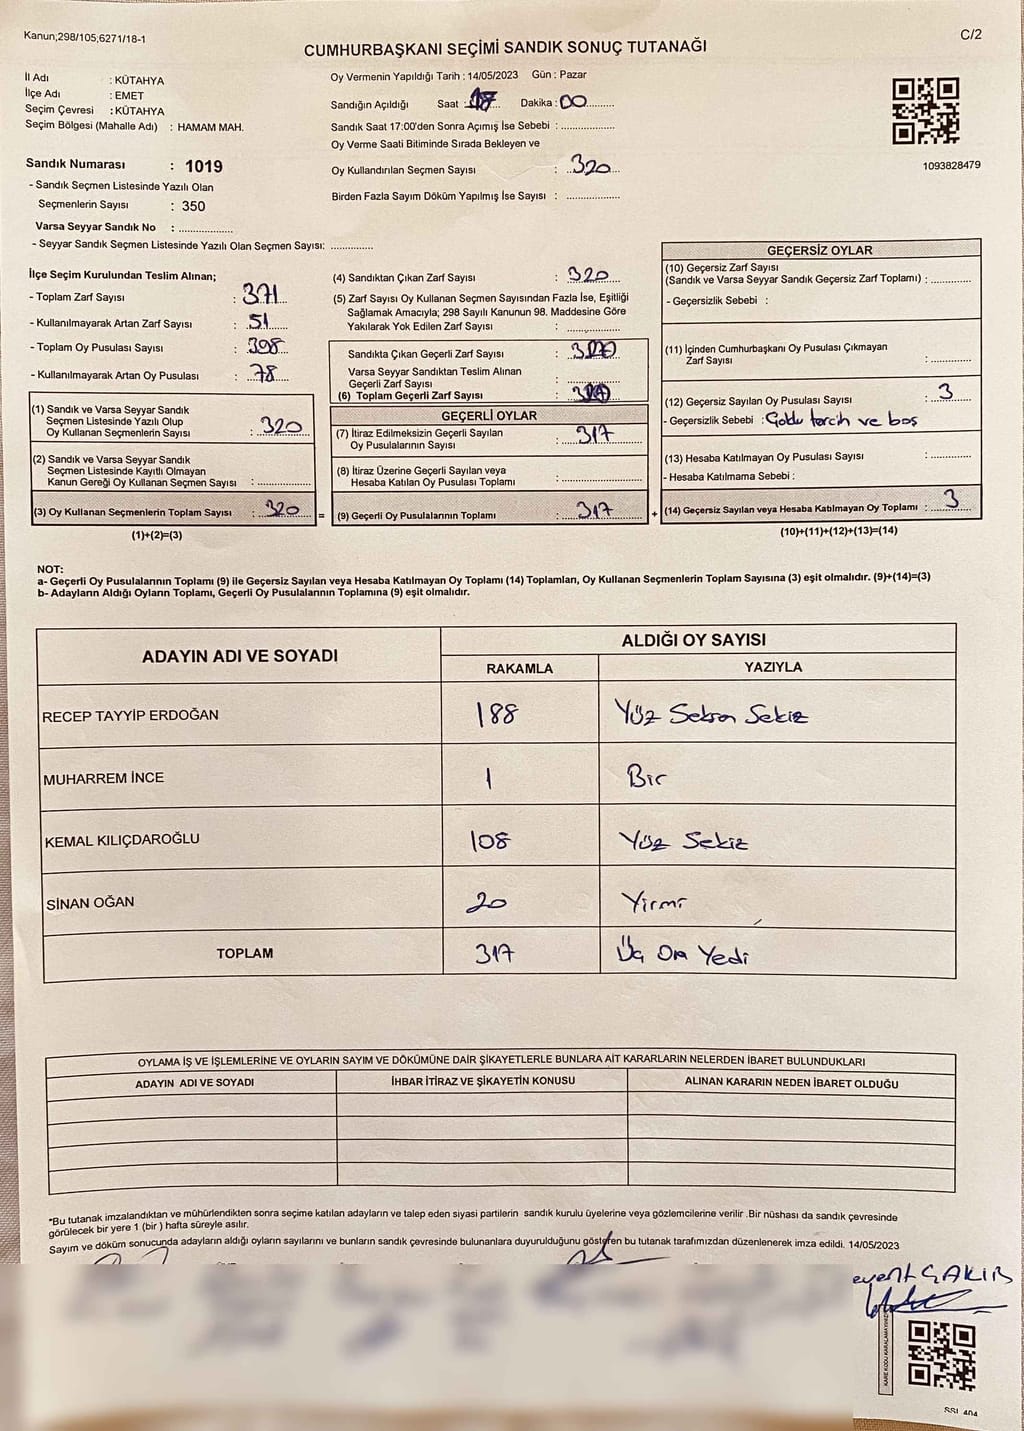 Kanun;298/105;6271/18-1
C/2
CUMHURBAŞKANI SEÇİMİ SANDIK SONUÇ TUTANAĞI
İl Adı : KÜTAHYA
İlçe Adı : EMET
Seçim Çevresi : KÜTAHYA
Seçim Bölgesi (Mahalle Adı) : HAMAM MAH.
Sandık Numarası : 1019
- Sandık Seçmen Listesinde Yazılı Olan
Seçmenlerin Sayısı : 350
Varsa Seyyar Sandık No : ..................
- Seyyar Sandık Seçmen Listesinde Yazılı Olan Seçmen Sayısı: ..............
Oy Vermenin Yapıldığı Tarih : 14/05/2023 Gün : Pazar
Sandığın Açıldığı Saat : 17 Dakika : 00
Sandık Saat 17:00'den Sonra Açımış İse Sebebi : ..................
Oy Verme Saati Bitiminde Sırada Bekleyen ve
Oy Kullandırılan Seçmen Sayısı : 320
Birden Fazla Sayım Döküm Yapılmış İse Sayısı : ..................
1093828479
İlçe Seçim Kurulundan Teslim Alınan;
- Toplam Zarf Sayısı : 371
- Kullanılmayarak Artan Zarf Sayısı : 51
- Toplam Oy Pusulası Sayısı : 398
- Kullanılmayarak Artan Oy Pusulası : 78
(1) Sandık ve Varsa Seyyar Sandık
Seçmen Listesinde Yazılı Olup
Oy Kullanan Seçmenlerin Sayısı : 320
(2) Sandık ve Varsa Seyyar Sandık
Seçmen Listesinde Kayıtlı Olmayan
Kanun Gereği Oy Kullanan Seçmen Sayısı : ..................
(3) Oy Kullanan Seçmenlerin Toplam Sayısı : 320
(1)+(2)=(3)
=
(4) Sandıktan Çıkan Zarf Sayısı : 320
(5) Zarf Sayısı Oy Kullanan Seçmen Sayısından Fazla İse, Eşitliği
Sağlamak Amacıyla; 298 Sayılı Kanunun 98. Maddesine Göre
Yakılarak Yok Edilen Zarf Sayısı : ..................
Sandıkta Çıkan Geçerli Zarf Sayısı :
Varsa Seyyar Sandıktan Teslim Alınan
Geçerli Zarf Sayısı : ..................
(6) Toplam Geçerli Zarf Sayısı :
GEÇERLİ OYLAR
(7) İtiraz Edilmeksizin Geçerli Sayılan
Oy Pusulalarının Sayısı : 317
(8) İtiraz Üzerine Geçerli Sayılan veya
Hesaba Katılan Oy Pusulası Toplamı : ..................
(9) Geçerli Oy Pusulalarının Toplamı : 317
+
GEÇERSİZ OYLAR
(10) Geçersiz Zarf Sayısı
(Sandık ve Varsa Seyyar Sandık Geçersiz Zarf Toplamı) : ..............
- Geçersizlik Sebebi :
(11) İçinden Cumhurbaşkanı Oy Pusulası Çıkmayan
Zarf Sayısı : ..............
(12) Geçersiz Sayılan Oy Pusulası Sayısı : 3
- Geçersizlik Sebebi : Çoklu tercih ve boş
(13) Hesaba Katılmayan Oy Pusulası Sayısı : ..............
- Hesaba Katılmama Sebebi :
(14) Geçersiz Sayılan veya Hesaba Katılmayan Oy Toplamı : 3
(10)+(11)+(12)+(13)=(14)
NOT:
a- Geçerli Oy Pusulalarının Toplamı (9) ile Geçersiz Sayılan veya Hesaba Katılmayan Oy Toplamı (14) Toplamları, Oy Kullanan Seçmenlerin Toplam Sayısına (3) eşit olmalıdır. (9)+(14)=(3)
b- Adayların Aldığı Oyların Toplamı, Geçerli Oy Pusulalarının Toplamına (9) eşit olmalıdır.
ADAYIN ADI VE SOYADI
ALDIĞI OY SAYISI
RAKAMLA YAZIYLA
RECEP TAYYİP ERDOĞAN 188 Yüz Seksen Sekiz
MUHARREM İNCE 1 Bir
KEMAL KILIÇDAROĞLU 108 Yüz Sekiz
SİNAN OĞAN 20 Yirmi
TOPLAM 317 Üç On Yedi
OYLAMA İŞ VE İŞLEMLERİNE VE OYLARIN SAYIM VE DÖKÜMÜNE DAİR ŞİKAYETLERLE BUNLARA AİT KARARLARIN NELERDEN İBARET BULUNDUKLARI
ADAYIN ADI VE SOYADI İHBAR İTİRAZ VE ŞİKAYETİN KONUSU ALINAN KARARIN NEDEN İBARET OLDUĞU
*Bu tutanak imzalandıktan ve mühürlendikten sonra seçime katılan adayların ve talep eden siyasi partilerin sandık kurulu üyelerine veya gözlemcilerine verilir .Bir nüshası da sandık çevresinde
görülecek bir yere 1 (bir ) hafta süreyle asılır.
Sayım ve döküm sonucunda adayların aldığı oyların sayılarını ve bunların sandık çevresinde bulunanlara duyurulduğunu gösteren bu tutanak tarafımızdan düzenlenerek imza edildi. 14/05/2023
event ÇAKIR
KARE KODU KARALAMAYINIZ